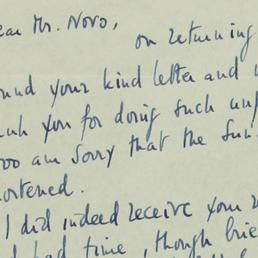 ear Mr. Novo,
on returning
und your kind letter and
you for doing such
too am sorry that the
ortened.
I did indeed receive your
had time, though brie